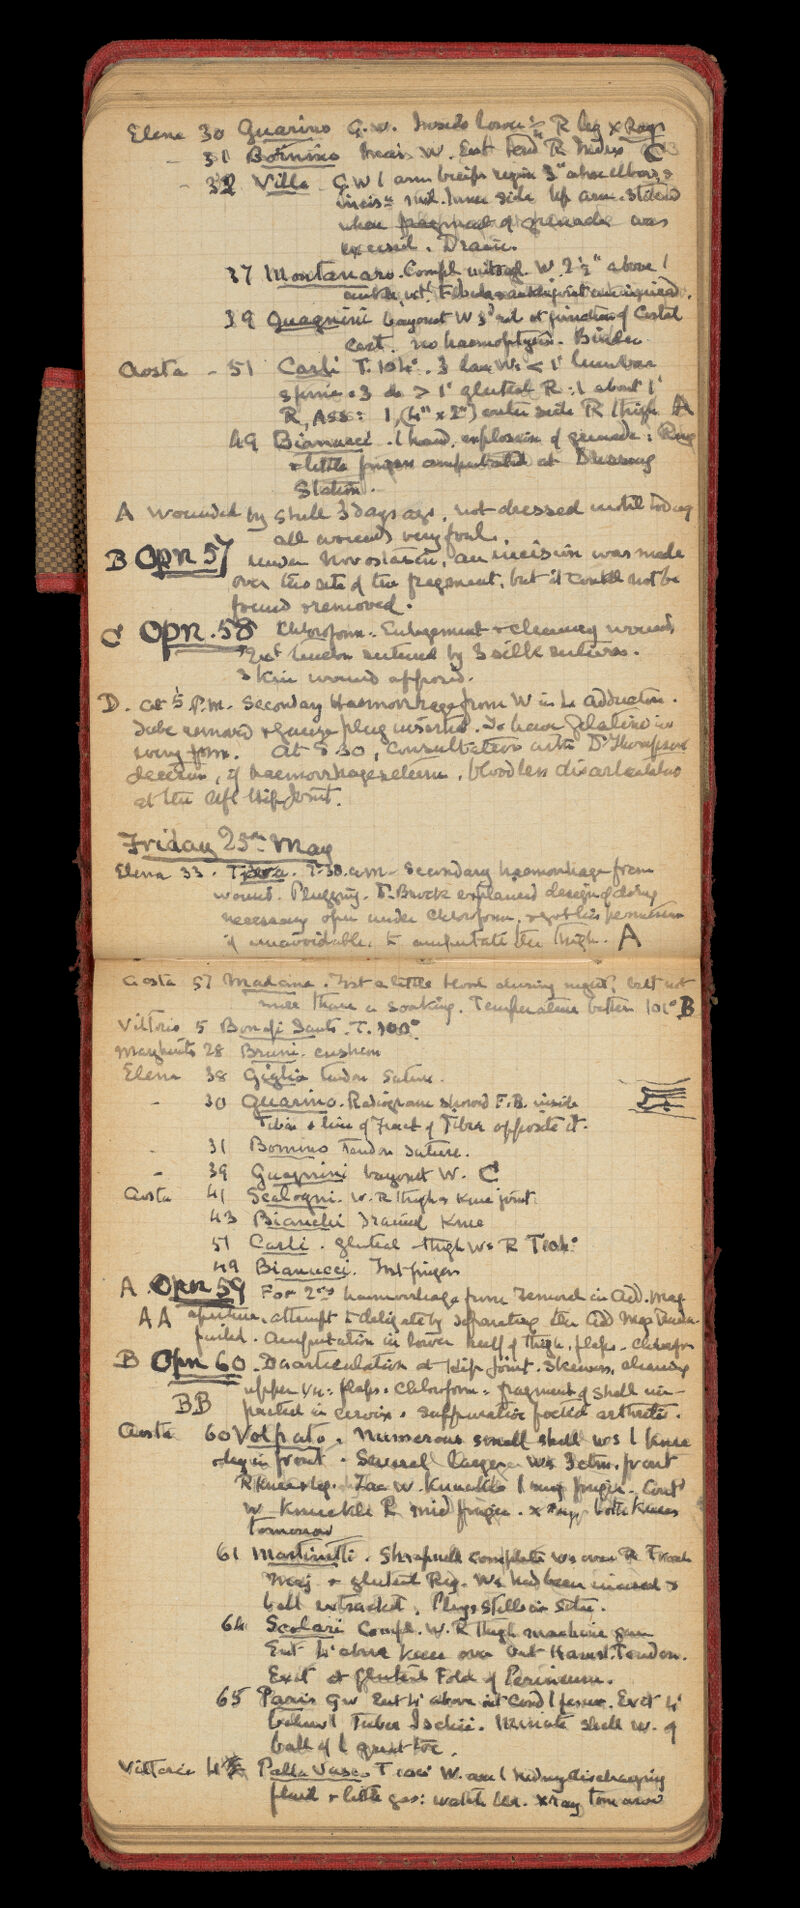 Elena 30 Guarino G.W. Inside lower ¼ R leg X Rays
- 31 Bomino Incis W. Ext Tend R Index C
- 32 Villa G.W l arm biceps region 3" above elbow &
incisn int. Inner side up arm. Stitched
when fragment of grenade was
excised. Drain.
37 Montanaro. Compl W. 2½" above l
ankle, int.
39 Guagnini bayonet W 3rd at junction of Costal
cart. no haemoptysis. Binder
Aosta - 51 Carli T. 104°. 3 lac Ws < 1" lumbar
spine. 3 do > 1" gluteal R: 1 about 1"
R, Ass: 1, (4" x 2") outer side R thigh A
49 Bianucci. l hand, explosion of grenade: Ring
& little fingers amputated at Dressing
Station.
A Wounded by shell 3 days ago, not dressed until today
all wounds very foul.
B Opn 57 under Novostain, an incision was made
over the site of the fragment, but it could not be
found & removed.
C Opn. 58 Chloroform. Enlargement & cleaning wounds
Ext tendon sutured by 3 silk sutures.
Skin wound apposed.
D. At 5 P.M. Secondary Haemorrhage from W in L adductor.
Tube removed & gauze plug inserted. To have gelatine in
every form. At 5 30, Consultation with Dr Thompson
decision, if haemorrhage return, bloodless disarticulation
at the left Hip Joint.
Friday 25th May
Elena 33. 7.30. a.m. Secondary haemorrhage from
wound. Plugging. Dr. Brock explained design of doing
necessary opn under Chloroform, & got his permission
if unavoidable, to amputate the thigh. A
Aosta 57 Madama. Lost a little blood during night, but not
more than a soaking. Temperature better 101° B
Vittorio 5 Bonafi Santo. T. 100°
Margherita 28 Bruni. cushion
Elena 38 Giglio tendon suture.
- 30 Guarino. Radiogram showed F.B. inside
Tibia & line of Fract of Tibia opposite it.
- 31 Bomino tendon suture.
- 39 Guagnini bayonet W. C
Aosta 41 Scalogni. W. R thigh & Knee joint
43 Bianchi Drained Knee
51 Carli. gluteal & thigh Ws R T 104°
49 Bianucci. Lost fingers
A Opn 59 For 2ry haemorrhage from Femoral in Add. Mag
AA aperture, attempt to deligate by separating the Add Mag
failed. Amputation in lower half of thigh, flaps. Chlorofm
B Opn 60. Disarticulation at Hip Joint. Skewers, cleaning
upper ¼: flaps. Chloroform. fragment of shell im-
BB pacted in cervix. Suppuration focal arthritis.
Aosta 60 Volpato. Numerous small shell Ws l Knee
& leg in front. Several larger Ws 3 ctm. front
R Knee & leg. Lac W. Knuckle l ring finger. Cont
W Knuckle R mid finger. X ray both knees
tomorrow
61 Martinetti. Shrapnell complete Ws over R Troch
Maj & gluteal Reg. Ws had been incised &
ball extracted, Plugs still in situ.
64 Scolari Compl. W. R thigh machine gun
Ent 4" above knee over Out Hamst. Tendon.
Exit at gluteal Fold of Perineum.
65 Paris GW Ent 4" above int Cond l femur. Exit 4"
below l Tuber Ischii. Minute shell W. of
ball of l great toe.
Vittorio 4 Palla Vasco T 100° W. over l kidney discharging
fluid & little gas: watch her. X ray tomorrow